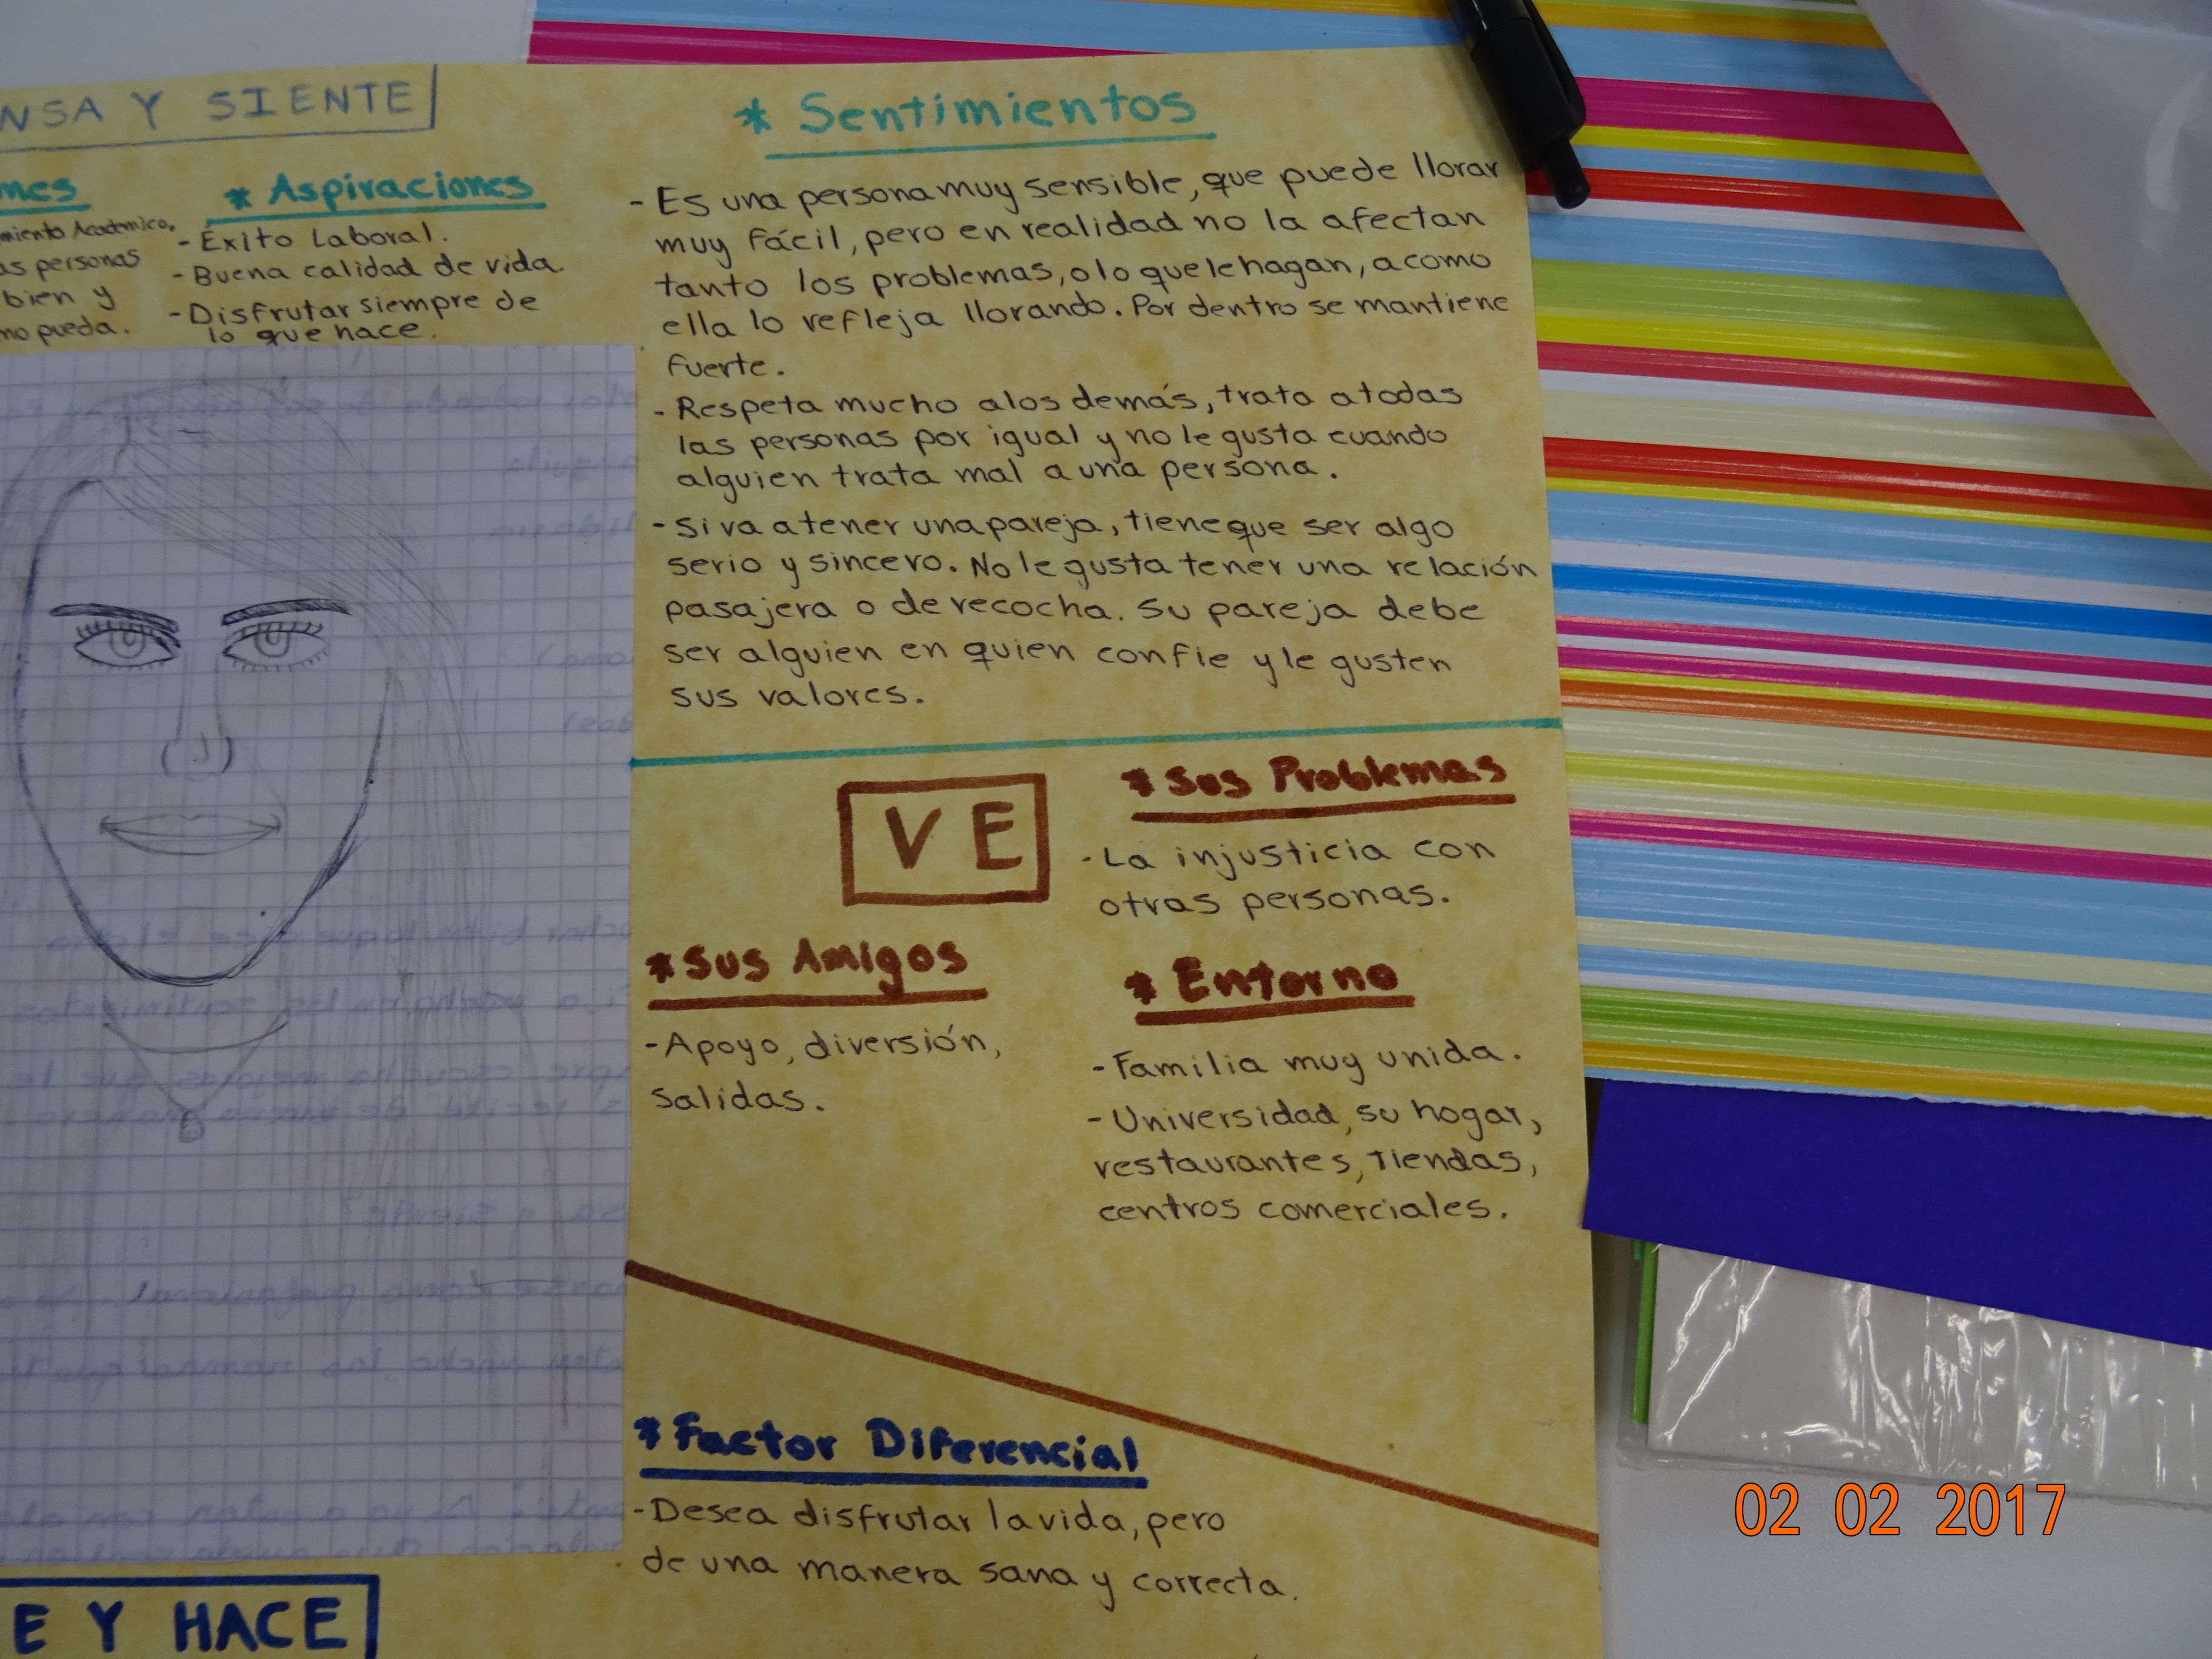 NSA Y SIENTE
nes
miento Academico,
as personas
bien y
mo pueda.
* Aspiraciones
- Éxito Laboral.
- Buena calidad de vida.
- Disfrutar siempre de
lo que hace.
* Sentimientos
- Es una persona muy sensible, que puede llorar
muy fácil, pero en realidad no la afectan
tanto los problemas, o lo que le hagan, a como
ella lo refleja llorando. Por dentro se mantiene
fuerte.
- Respeta mucho a los demás, trata a todas
las personas por igual y no le gusta cuando
alguien trata mal a una persona.
- Si va a tener una pareja, tiene que ser algo
serio y sincero. No le gusta tener una relación
pasajera o de recocha. Su pareja debe
ser alguien en quien confie y le gusten
sus valores.
VE
* Sus Problemas
- La injusticia con
otras personas.
* Sus Amigos
- Apoyo, diversión,
salidas.
* Entorno
- Familia muy unida.
- Universidad, su hogar,
restaurantes, tiendas,
centros comerciales.
* Factor Diferencial
- Desea disfrutar la vida, pero
de una manera sana y correcta.
E Y HACE
02 02 2017